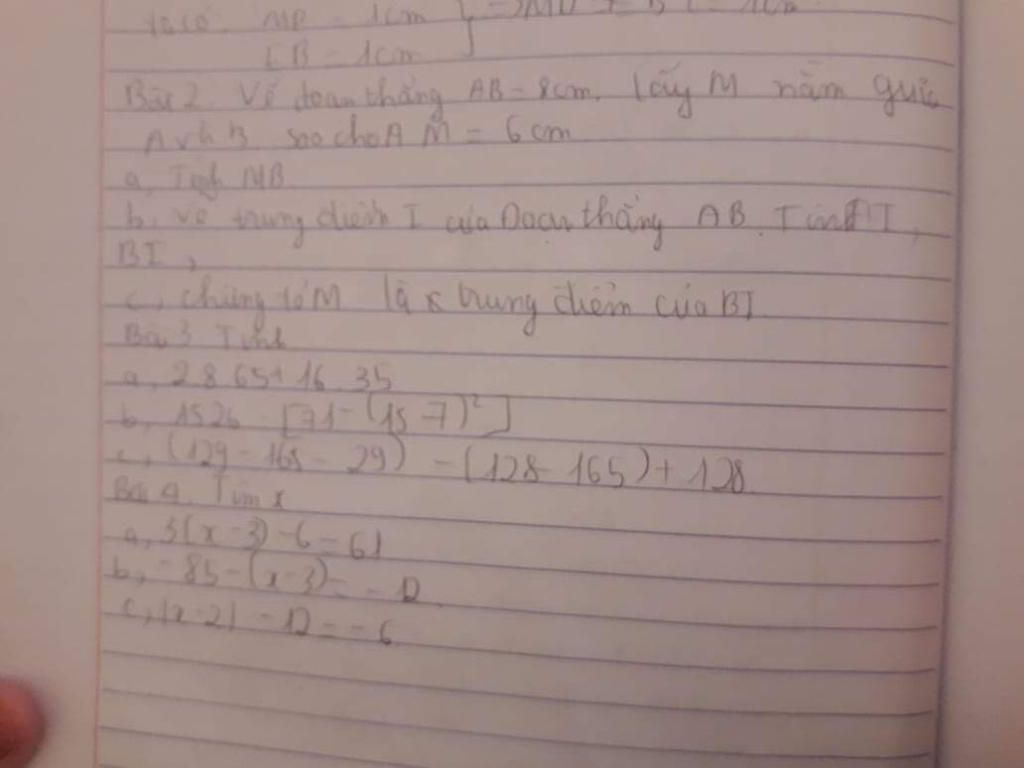 ta có: MD = 1cm } =>MD
EB = 1cm
Bài 2. Vẽ đoạn thẳng AB = 8cm. lấy M nằm giữa
A và B sao cho A M = 6 cm
a, Tính MB
b, vẽ trung điểm I của Đoạn thẳng AB. Tính I,
BI,
c, chứng tỏ M là trung điểm của BI
Bài 3 Tính
a, 28 65+ 16 35
b, 1526 - [71 - (15 - 7)²]
c, (129 - 165 - 29) - (128 - 165) + 128
Bài 4. Tìm x
a, 3(x - 3) - 6 = 61
b, - 85 - (x - 3) = - 12
c, |x - 2| - 12 = - 6